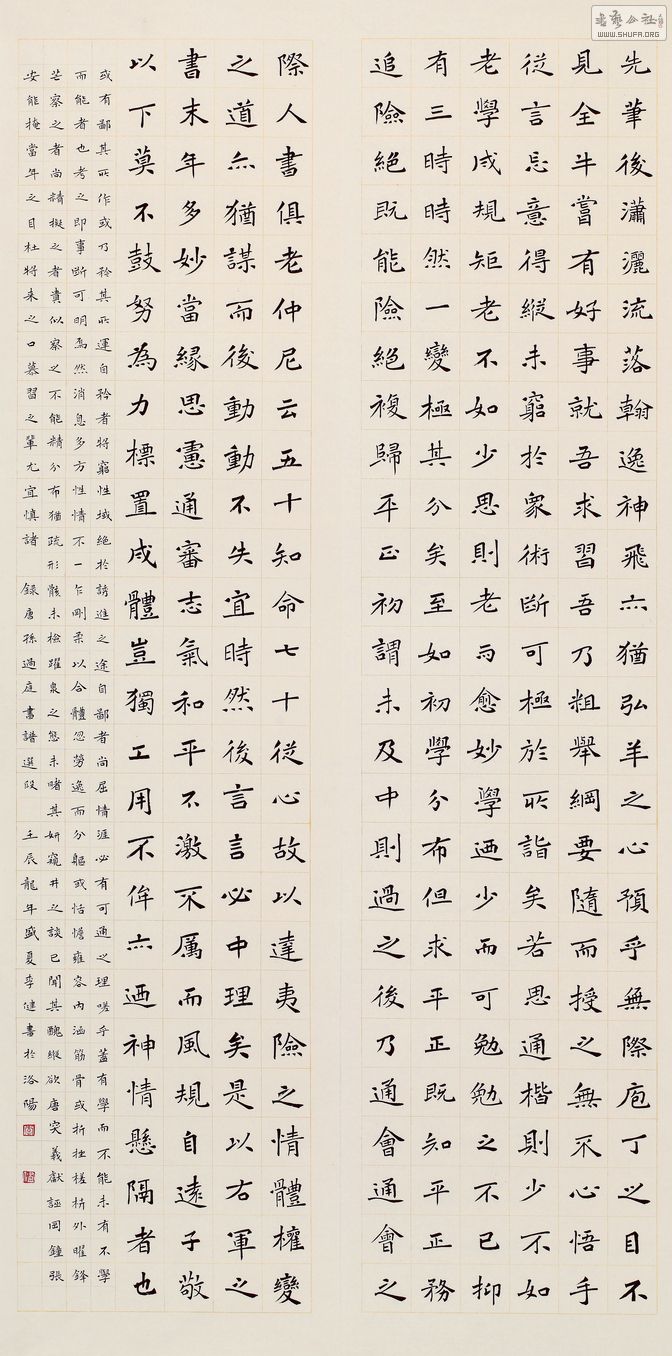 先筆後瀟灑流落翰逸神飛亦猶弘羊之心預乎無際庖丁之目不
見全牛嘗有好事就吾求習吾乃粗舉綱要隨而授之無不心悟手
從言忘意得縱未窮於衆術斷可極於所詣矣若思通楷則少不如
老學成規矩老不如少思則老而愈妙學迺少而可勉勉之不已抑
有三時時然一變極其分矣至如初學分布但求平正既知平正務
追險絕既能險絕複歸平正初謂未及中則過之後乃通會通會之
際人書俱老仲尼云五十知命七十從心故以達夷險之情體權變
之道亦猶謀而後動動不失宜時然後言言必中理矣是以右軍之
書末年多妙當緣思慮通審志氣和平不激不厲而風規自遠子敬
以下莫不鼓努為力標置成體豈獨工用不侔亦迺神情懸隔者也
或有鄙其所作或乃矜其所運自矜者將窮性域絕於誘進之途自鄙者尚屈情涯必有可通之理嗟乎蓋有學而不能未有不學
而能者也考之即事斷可明焉然消息多方性情不一乍剛柔以合體忽勞逸而分軀或恬憺雍容內涵筋骨或折挫槎枿外曜鋒
芒察之者尚精擬之者貴似察之不能精分布猶疏形骸未檢躍泉之態未睹其妍窺井之談已聞其醜縱欲唐突羲獻誣罔鍾張
安能掩當年之目杜將來之口慕習之輩尤宜慎諸 錄唐孫過庭書譜選段 壬辰龍年盛夏李健書於洛陽
WWW.SHUFA.ORG